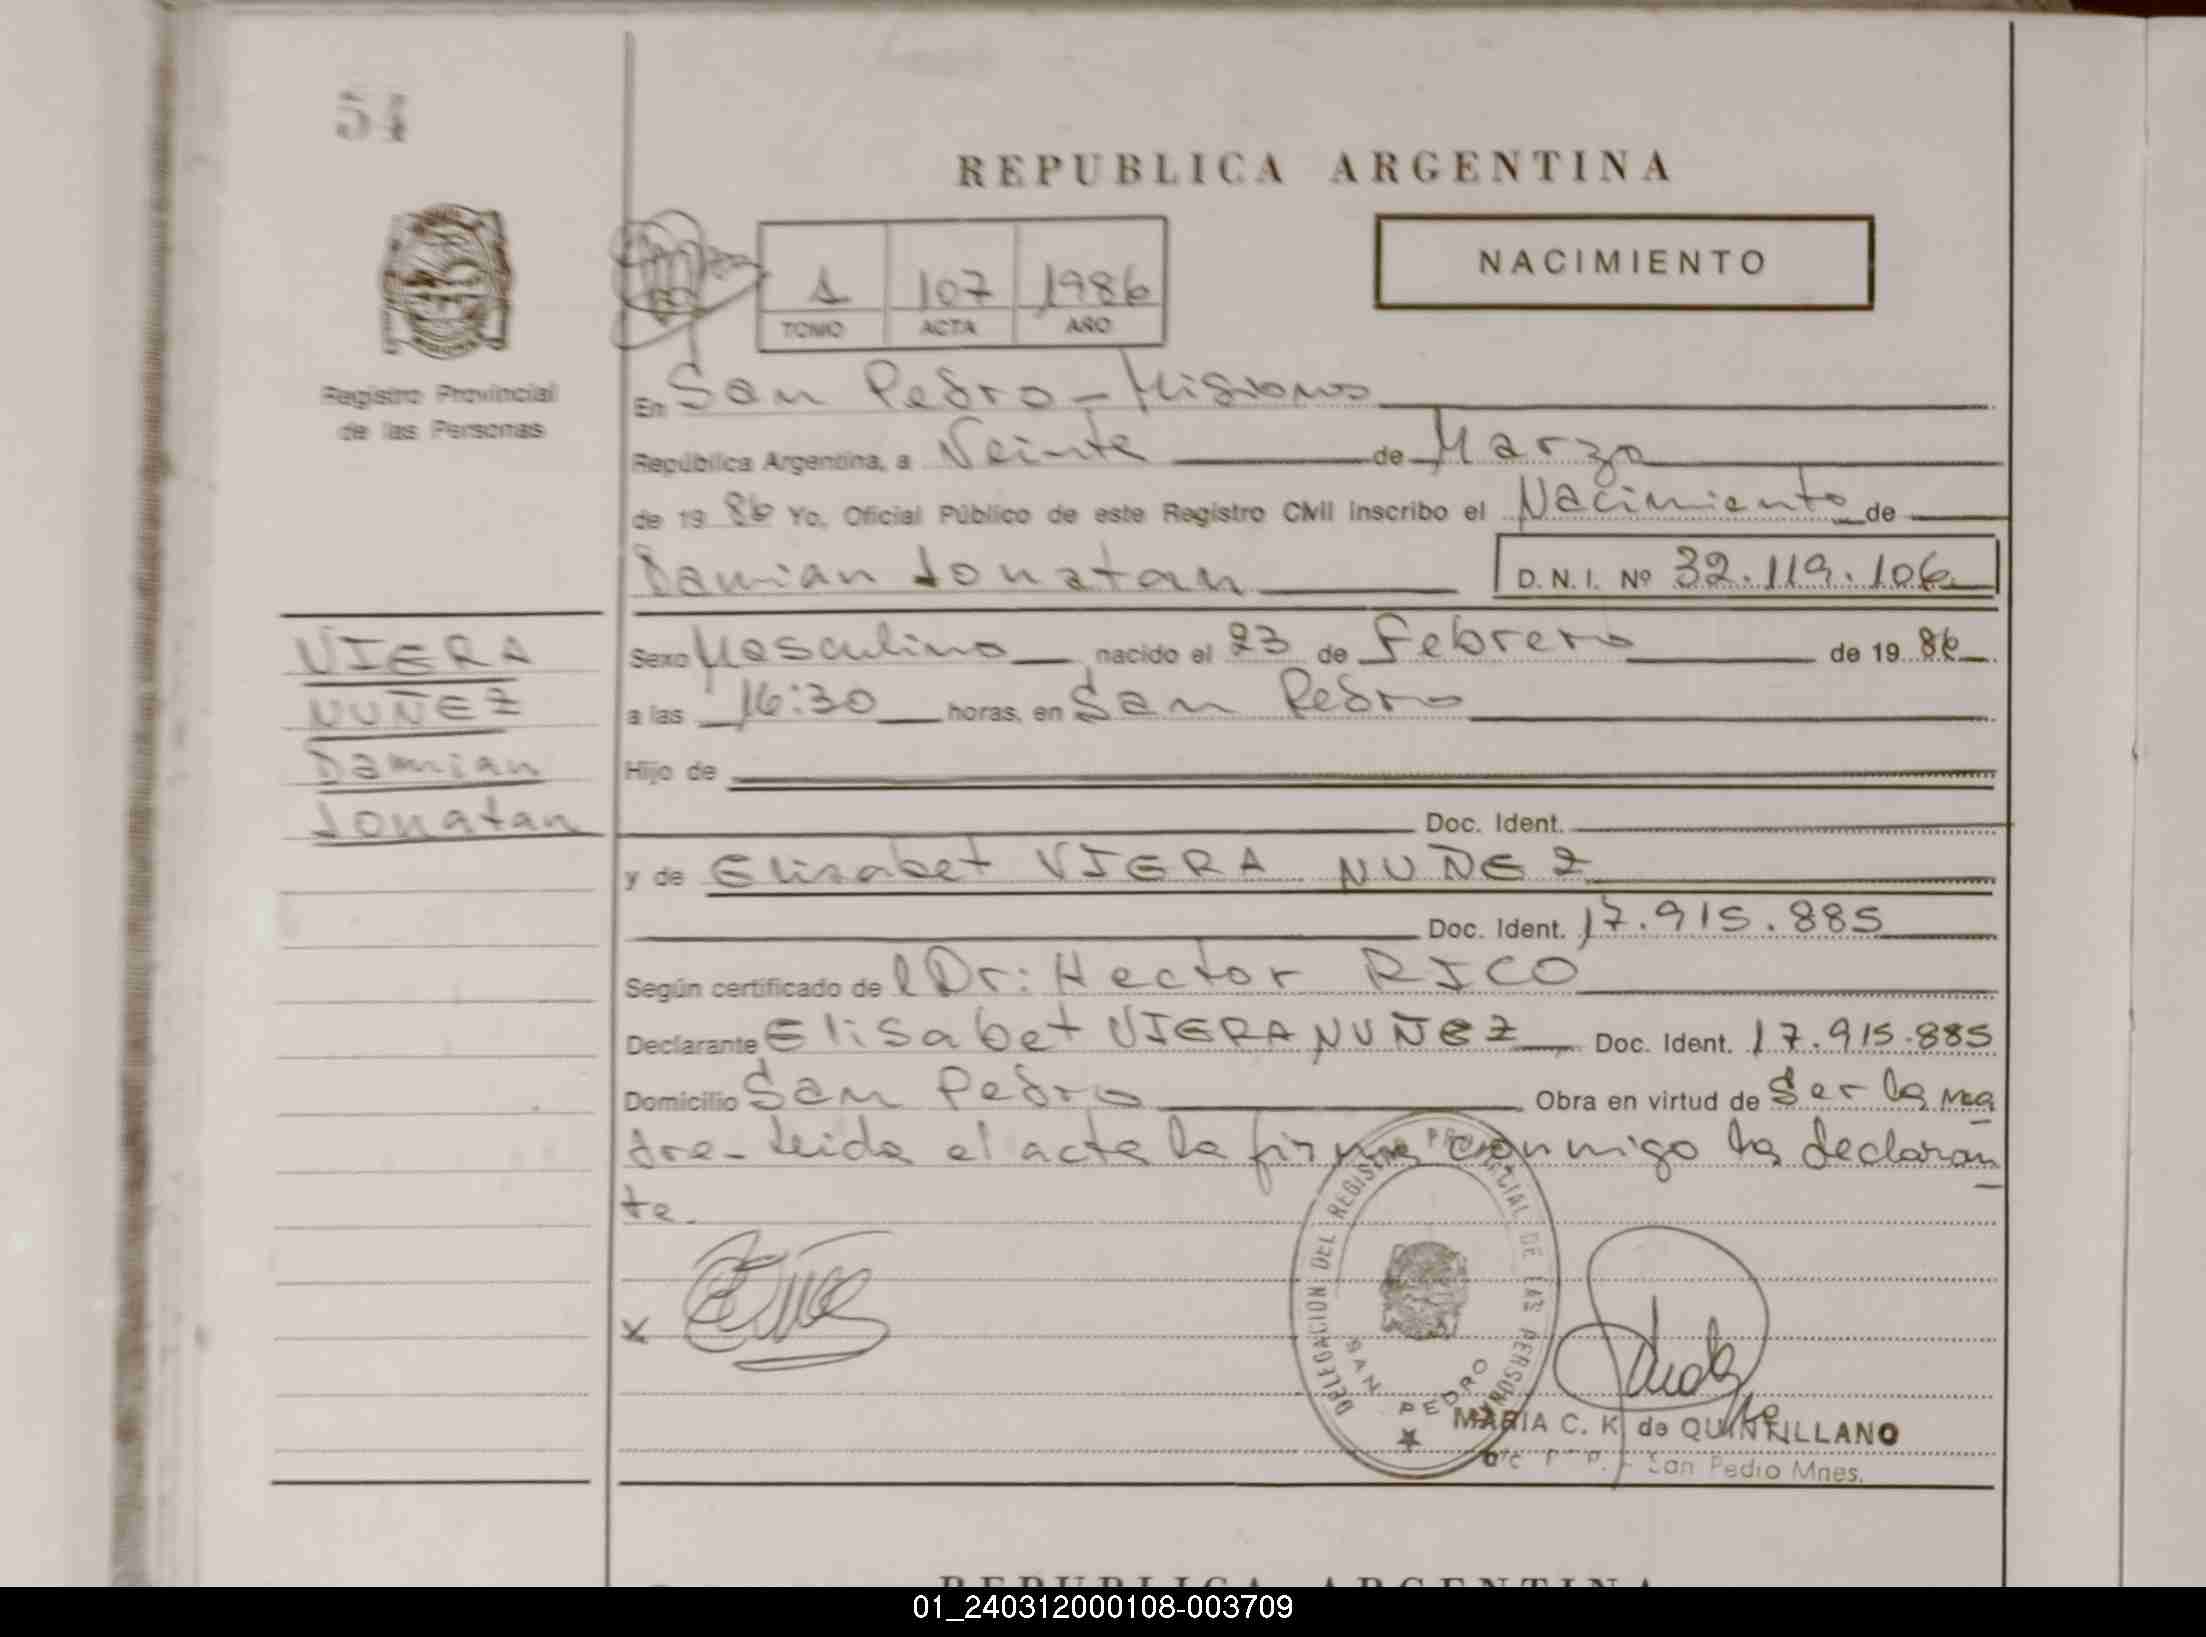 54
REPUBLICA ARGENTINA
NACIMIENTO
1 107 1986
TOMO ACTA AÑO
Registro Provincial
de las Personas
En San Pedro - Misiones
República Argentina, a Veinte de Marzo
de 19 86 Yo, Oficial Público de este Registro Civil inscribo el Nacimiento de
Damian Jonatan D.N.I. Nº 32.119.106
VIERA
NUÑEZ
Damian
Jonatan
Sexo Masculino nacido el 23 de Febrero de 19 86
a las 16:30 horas, en San Pedro
Hijo de
Doc. Ident.
y de Elisabet VIERA NUÑEZ
Doc. Ident. 17.915.885
Según certificado de l Dr: Hector RICO
Declarante Elisabet VIERA NUÑEZ Doc. Ident. 17.915.885
Domicilio San Pedro Obra en virtud de Ser la ma
dre - Leida el acta la firma conmigo la declaran
te.
x
DELEGACION DEL REGISTRO PROVINCIAL DE LAS PERSONAS
SAN PEDRO
MARIA C. K. de QUINTILLANO
San Pedro Mnes.
REPUBLICA ARGENTINA
01_240312000108-003709